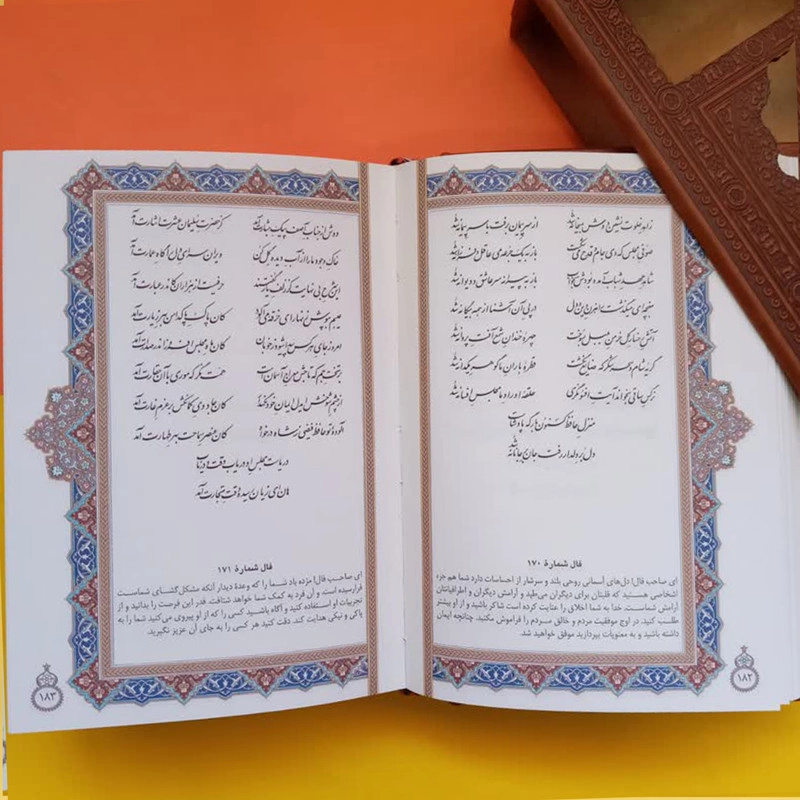 زاهد خلوت نشین دوش به میخانه شد از سر پیمان برفت با سر پیمانه شد
صوفی مجلس که دی جام و قدح می‌شکست باز به یک جرعه می عاقل و فرزانه شد
شاهد عهد شباب آمده بودش به خواب باز به پیرانه سر عاشق و دیوانه شد
مغبچه‌ای میگذشت راهزن دین و دل در پی آن آشنا از همه بیگانه شد
آتش رخسار گل خرمن بلبل بسوخت چهرهٔ خندان شمع آفت پروانه شد
گریه شام و سحر شکر که ضایع نگشت قطره باران ما گوهر یکدانه شد
نرگس ساقی بخواند آیت افسونگری حلقه اوراد ما مجلس افسانه شد
منزل حافظ کنون بارگه پادشاست
دل بر دلدار رفت جان بر جانانه شد
فال شمارهٔ ۱۷۰
ای صاحب فال! دل‌های آسمانی روحی بلند و سرشار از احساسات دارد شما هم جزء
اشخاصی هستید که قلبتان برای دیگران می‌طپد و آرامش دیگران و اطرافیانتان
آرامش شماست. خدا به شما اخلاق را عنایت کرده است شاکر باشید و از او پیشتر
طلب کنید. در اوج موفقیت مردم و خالق مردم را فراموش مکنید. چنانچه ایمان
داشته باشید و به معنویات بپردازید موفق خواهید شد.
۱۸۲
دوش از جناب آصف پیک بشارت آمد کز حضرت سلیمان عشرت اشارت آمد
خاک وجود ما را از آب دیده گل کن ویران سرای دل را گاه عمارت آمد
این شرح بی نهایت کز زلف یار گفتند حرفیست از هزاران کاندر عبارت آمد
عیبم بپوش زنهار ای خرقه می آلود کان پاک پاکدامن بهر زیارت آمد
امروز جای هر کس پیدا شود ز خوبان کان ماه مجلس افروز اندر صدارت آمد
بر تخت جم که تاجش معراج آسمان است همت نگر که موری با آن حقارت آمد
از چشم شوخش ای دل ایمان خود نگه دار کان جادوی کمانکش بر عزم غارت آمد
آلودهٔ تو حافظ فیضی ز شاه درخواه کان عنصر سماحت بهر طهارت آمد
دریاست مجلس او دریاب وقت و دریاب
هان ای زیان رسیده وقت تجارت آمد
فال شمارهٔ ۱۷۱
ای صاحب فال! مژده باد شما را که وعدهٔ دیدار آنکه مشکل‌گشای شماست
فرارسیده است و آن فرد به کمک شما خواهد شتافت. قدر این فرصت را بدانید و از
تجربیات او استفاده کنید و آگاه باشید کسی را که از او پیروی می‌کنید شما را به
پاکی و نیکی هدایت کند. دقت کنید هر کسی را به جای آن عزیز نگیرید.
۱۸۳